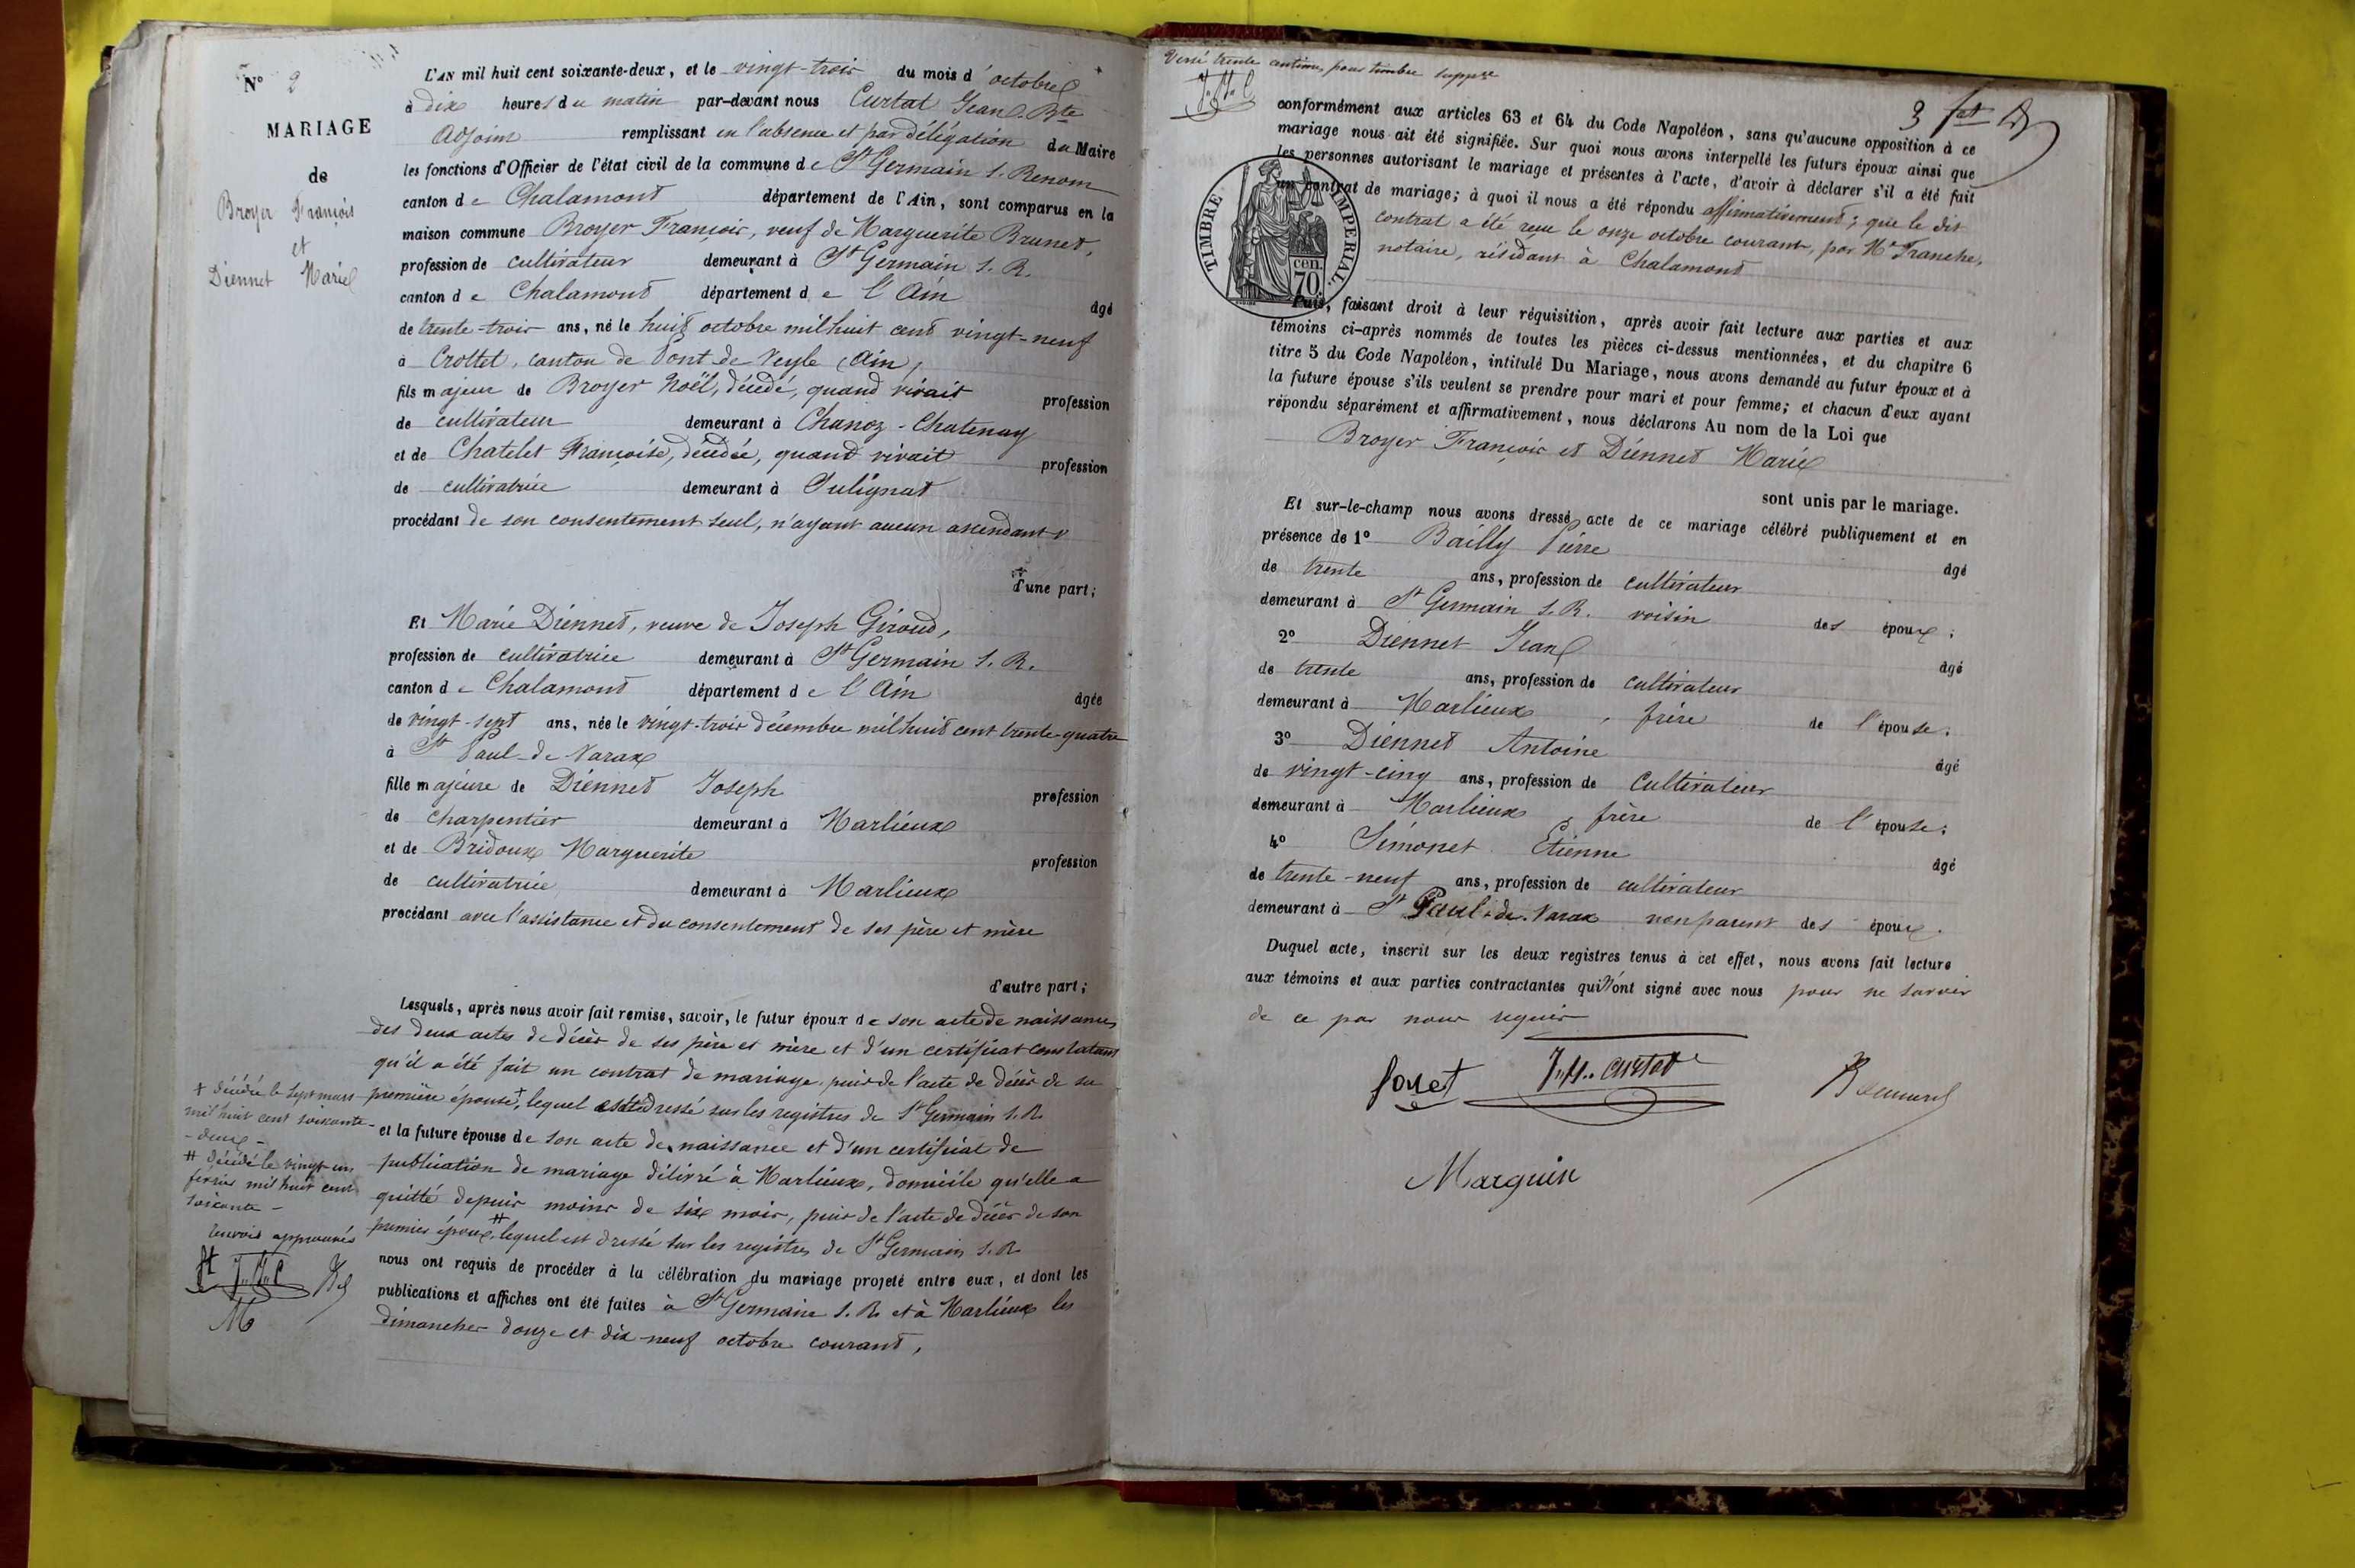 N° 2
MARIAGE
de
Broyer François
et
Diennet Marie
L'AN mil huit cent soixante-deux, et le vingt-trois du mois d'octobre
à dix heures du matin par-devant nous Curtat Jean Bte
Adjoint remplissant en l'absence et par délégation du Maire
les fonctions d'Officier de l'état civil de la commune de St Germain s. Renom
canton de Chalamont département de l'Ain, sont comparus en la
maison commune Broyer François, veuf de Marguerite Brunet,
profession de cultivateur demeurant à St Germain s. R.
canton de Chalamont département de l'Ain âgé
de trente-trois ans, né le huit octobre mil huit cent vingt-neuf
à Crottet, canton de Pont-de-Veyle (Ain)
fils majeur de Broyer Noël, décédé, quand vivait profession
de cultivateur demeurant à Chanoz-Chatenay
et de Chatelet Françoise, décédée, quand vivait profession
de cultivatrice demeurant à Sulignat
procédant de son consentement seul, n'ayant aucun ascendant
d'une part;
Et Marie Diennet, veuve de Joseph Giroud,
profession de cultivatrice demeurant à St Germain s. R.
canton de Chalamont département de l'Ain âgée
de vingt-sept ans, née le vingt-trois décembre mil huit cent trente-quatre
à St Paul-de-Varax
fille majeure de Diennet Joseph profession
de charpentier demeurant à Marlieux
et de Bridoux Marguerite profession
de cultivatrice demeurant à Marlieux
procédant avec l'assistance et du consentement de ses père et mère
d'autre part;
Lesquels, après nous avoir fait remise, savoir, le futur époux de son acte de naissance,
des deux actes de décès de ses père et mère et d'un certificat constatant
qu'il a été fait un contrat de mariage, puis de l'acte de décès de sa
première épouse, + lequel est dressé sur les registres de St Germain s. R.
et la future épouse de son acte de naissance et d'un certificat de
publication de mariage délivré à Marlieux, domicile qu'elle a
quitté depuis moins de six mois, puis de l'acte de décès de son
premier époux, # lequel est dressé sur les registres de St Germain s. R.
nous ont requis de procéder à la célébration du mariage projeté entre eux, et dont les
publications et affiches ont été faites à St Germain s. R. et à Marlieux les
dimanches douze et dix-neuf octobre courant,
+ décédée le sept mars
mil huit cent soixante-
-deux-
# décédé le vingt un
février mil huit cent
soixante-
renvois approuvés
ft J.B.C
M
Versé trente centimes pour timbre suppre
J.B.C
3 fet
conformément aux articles 63 et 64 du Code Napoléon, sans qu'aucune opposition à ce
mariage nous ait été signifiée. Sur quoi nous avons interpellé les futurs époux ainsi que
les personnes autorisant le mariage et présentes à l'acte, d'avoir à déclarer s'il a été fait
un contrat de mariage; à quoi il nous a été répondu affirmativement; que le dit
contrat a été reçu le onze octobre courant, par Me Franche,
notaire, résidant à Chalamont
TIMBRE IMPERIAL.
70 cen.
Puis, faisant droit à leur réquisition, après avoir fait lecture aux parties et aux
témoins ci-après nommés de toutes les pièces ci-dessus mentionnées, et du chapitre 6
titre 5 du Code Napoléon, intitulé Du Mariage, nous avons demandé au futur époux et à
la future épouse s'ils veulent se prendre pour mari et pour femme; et chacun d'eux ayant
répondu séparément et affirmativement, nous déclarons Au nom de la Loi que
Broyer François et Diennet Marie
sont unis par le mariage.
Et sur-le-champ nous avons dressé acte de ce mariage célébré publiquement et en
présence de 1° Bailly Pierre âgé
de trente ans, profession de cultivateur
demeurant à St Germain s. R. voisin des époux;
2° Diennet Jean âgé
de trente ans, profession de cultivateur
demeurant à Marlieux, frère de l'épouse;
3° Diennet Antoine âgé
de vingt-cinq ans, profession de cultivateur
demeurant à Marlieux, frère de l'épouse;
4° Simonet Etienne âgé
de trente-neuf ans, profession de cultivateur
demeurant à St Paul-de-Varax non parent des époux.
Duquel acte, inscrit sur les deux registres tenus à cet effet, nous avons fait lecture
aux témoins et aux parties contractantes qui n'ont signé avec nous pour ne savoir
de ce par nous requis
foret J.B. Curtat
Marguin